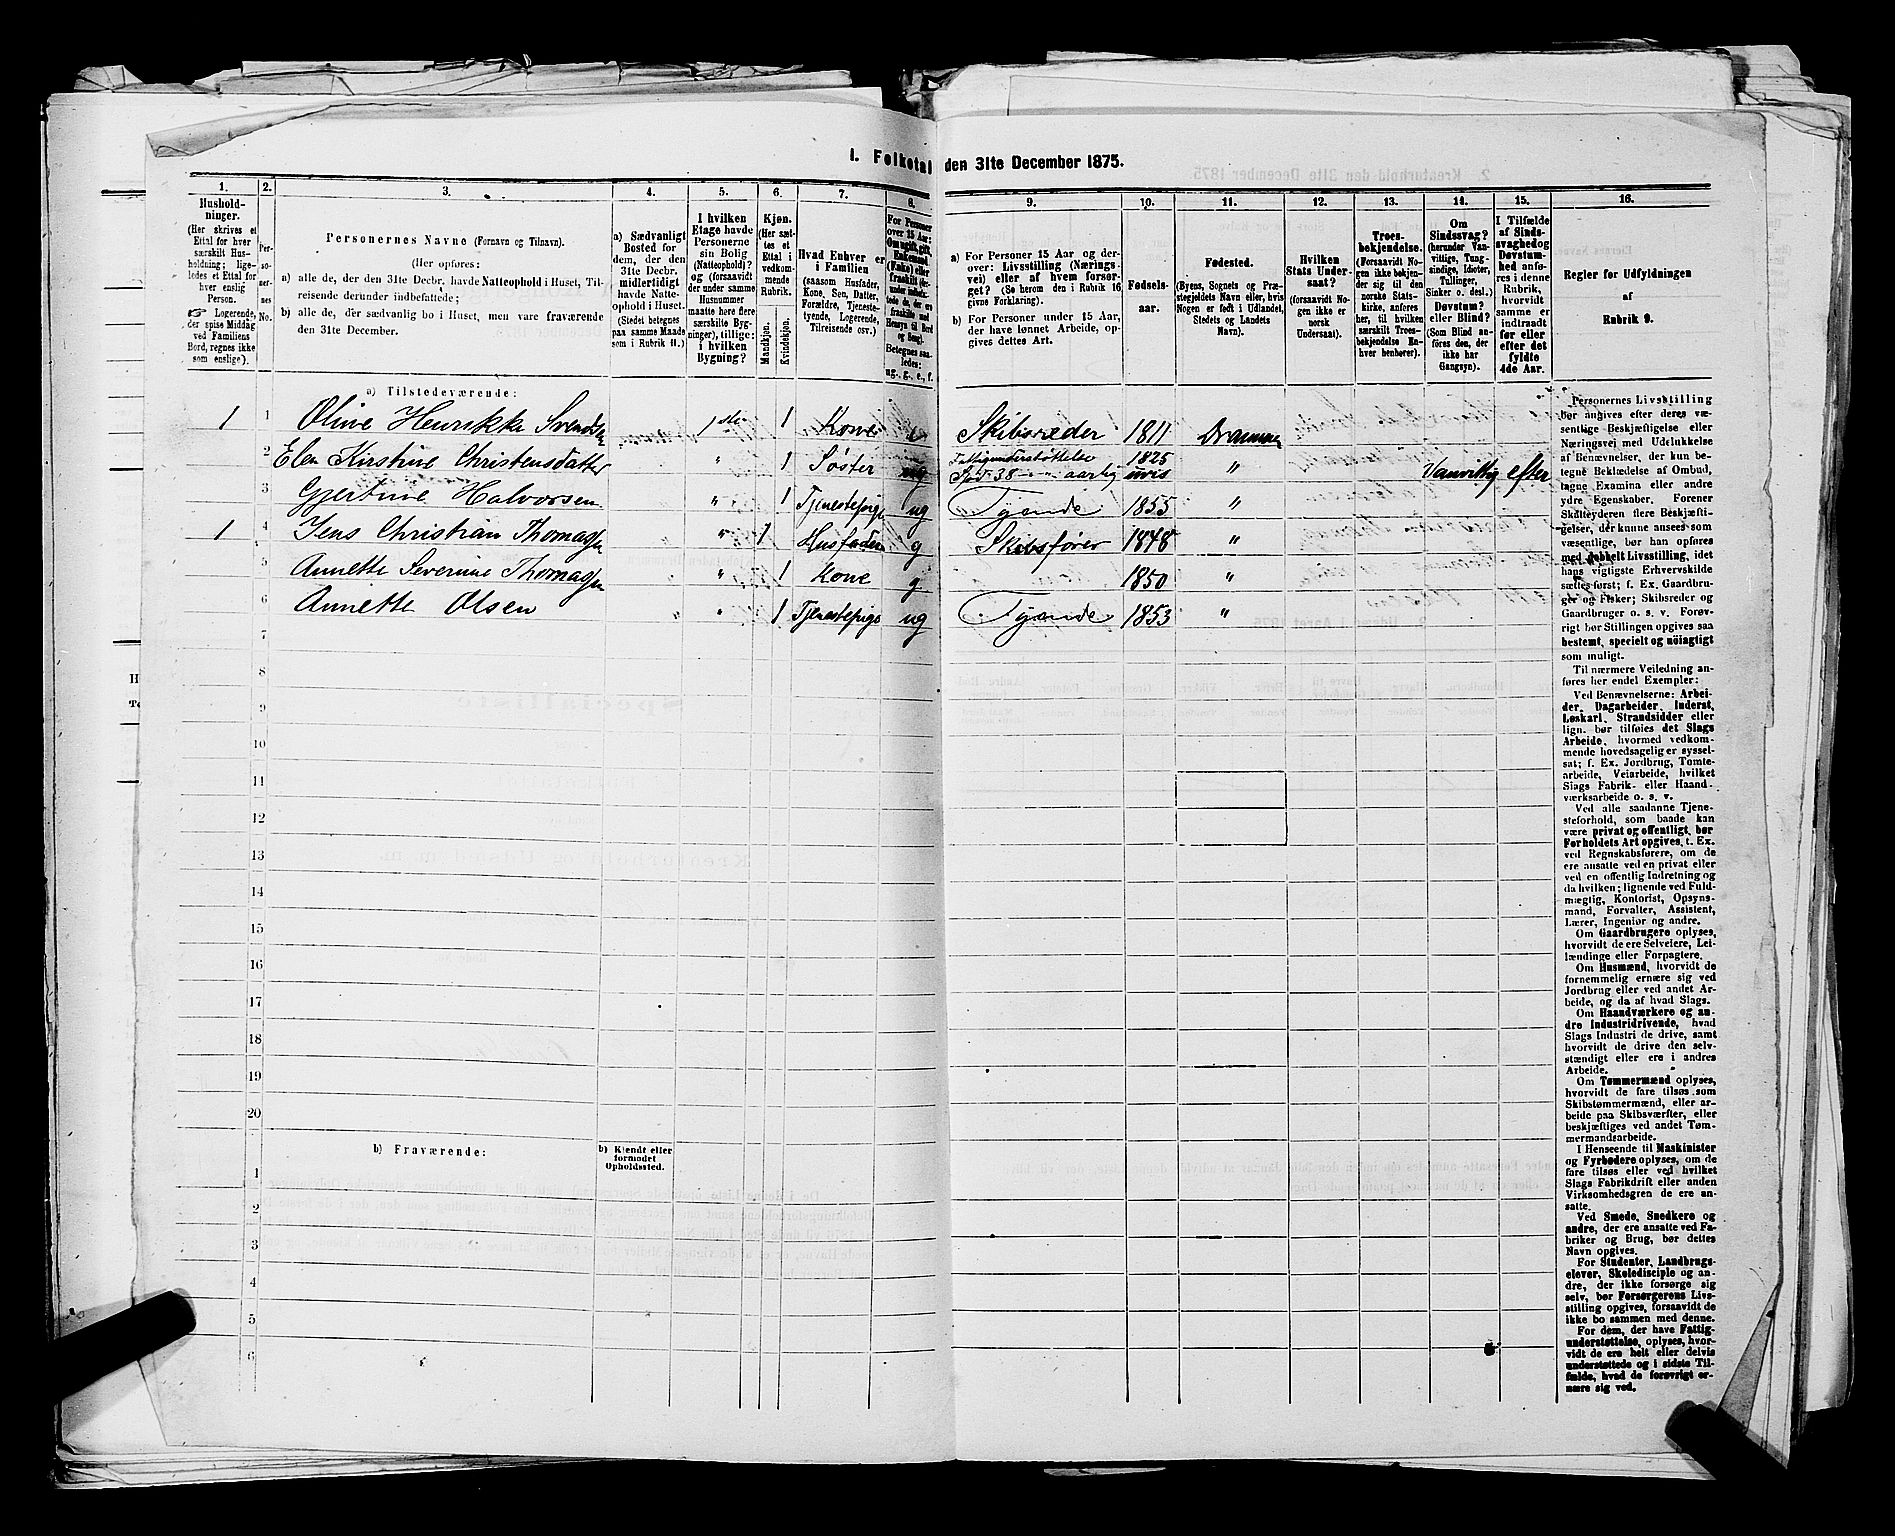 I. Folketal den 31te December 1875.
1. 2. 3. 4. 5. 6. 7. 8. 9. 10. 11. 12. 13. 14. 15. 16.
Husholdninger.
(Her skrives et
Ettal for hver
særskilt Husholdning;
ligeledes et Ettal for
hver enslig
Person.
☞ Logerende,
der spise Middag
ved Familiens
Bord, regnes ikke
som enslige).
Personernes No.
Personernes Navne (Fornavn og Tilnavn).
(Her opføres:
a) alle de, der den 31te Decbr. havde Natteophold i Huset, Tilreisende derunder indbefattede;
b) alle de, der sædvanlig bo i Huset, men vare fraværende
den 31te December.
a) Sædvanligt
Bosted for
dem, der den
31te Decbr.
midlertidigt
havde Natteophold i Huset.
(Stedet betegnes
paa samme Maade
som i Rubrik 11.)
I hvilken
Etage havde
Personerne
sin Bolig
(Natteophold)?
og (forsaavidt
der under samme
Husnummer
maatte høre flere
særskilte Bygninger), tillige:
i hvilken
Bygning?
Kjøn.
(Her sættes et
Ettal i
vedkommende
Rubrik.
Mandkjøn.
Kvindekjøn.
Hvad Enhver er
i Familien
(saasom Husfader,
Kone, Søn, Datter,
Forældre, Tjenestetyende, Logerende,
Tilreisende osv.)
For Personer
over 15 Aar:
Om ugift, gift,
Enkemand
(Enke) eller
fraskilt
Betegnes saaledes:
ug., g., e., f.
a) For Personer 15 Aar og derover: Livsstilling (Næringsvei) eller af hvem forsørget? (Se herom den i Rubrik 16
givne Forklaring).
b) For Personer under 15 Aar,
der have lønnet Arbeide, opgives dettes Art.
Fødselsaar.
Fødested.
(Byens, Sognets og Præstegjeldets Navn eller, hvis
Nogen er født i Udlandet,
Stedets og Landets
Navn).
Hvilken
Stats Undersaat?
(forsaavidt Nogen ikke er
norsk
Undersaat).
Troesbekjendelse.
(Forsaavidt Nogen ikke bekjender sig til den
norske Statskirke, anføres
her, til hvilken
særskilt Troesbekjendelse Enhver henhører).
Om
Sindssvag?
(herunder Vanvittige, Tungsindige, Idioter,
Tullinger,
Sinker o. desl.)
Døvstum?
eller Blind?
(Som Blind anføres den, der
ikke har
Gangsyn).
I Tilfælde
af Sindssvaghed og
Døvstumhed anføres i denne
Rubrik,
hvorvidt
samme er
indtraadt
før eller
efter det
fyldte
4de Aar.
Regler for Udfyldningen
af
Rubrik 9.
a) Tilstedeværende:
1 1 Oline Henrikke Svendsen 1ste 1 Kone Skibsreder 1811 Drammen
2 Elen Kirstine Christensdatter " 1 Søster ug Fattigunderstøttelse Spd. 38 aarlig 1825 uvis " Vanvittig efter
3 Gjertine Halvorsen " 1 Tjenestepige ug Tyende 1855 "
1 4 Jens Christian Thomassen " " 1 Husfader g Skibsfører 1848 "
5 Annette Severine Thomassen " " 1 Kone g 1850 "
6 Annette Olsen " " 1 Tjenestepige ug Tyende 1853 "
7
8
9
10
11
12
13
14
15
16
17
18
19
20
b) Fraværende:
b) Kjendt eller
formodet
Opholdssted.
1
2
3
4
5
6
Personernes Livsstilling
bør angives efter deres væsentlige Beskjæftigelse eller
Næringsvei med Udelukkelse
af Benævnelser, der kun betegne Beklædelse af Ombud,
tagne Examina eller andre
ydre Egenskaber. Forener
Skatteyderen flere Beskjæftigelser, der kunne ansees som
væsentlige, bør han opføres
med dobbelt Livsstilling, idet
hans vigtigste Erhvervskilde
sættes først; f. Ex. Gaardbruger og Fisker; Skibsreder og
Gaardbruger o. s. v. Forøvrigt bør Stillingen opgives saa
bestemt, specielt og nöiagtigt
som muligt.
Til nærmere Veiledning anføres her endel Exempler:
Ved Benævnelserne: Arbeider, Dagarbeider, Inderst,
Løskarl, Strandsidder eller
lign. bør tilføies det Slags
Arbeide, hvormed vedkommende hovedsagelig er sysselsat; f. Ex. Jordbrug, Tomtearbeide, Veiarbeide, hvilket
Slags Fabrik- eller Haandværksarbeide o. s. v.
Ved alle saadanne Tjenesteforhold, som baade kan
være privat og offentligt, bør
Forholdets Art opgives, t. Ex.
ved Regnskabsførere, om de
ere ansatte ved en privat eller
ved en offentlig Indretning og
da hvilken; lignende ved Fuldmægtig, Kontorist, Opsynsmand, Forvalter, Assistent,
Lærer, Ingeniør og andre.
Om Gaardbrugere oplyses,
hvorvidt de ere Selveiere, Leilændinge eller Forpagtere.
Om Husmænd, hvorvidt de
fornemmelig ernære sig ved
Jordbrug eller ved andet Arbeide, og da af hvad Slags.
Om Haandværkere og andre Industridrivende, hvad
Slags Industri de drive, samt
hvorvidt de drive den selvstændigt eller ere i andres
Arbeide.
Om Tømmermænd oplyses,
hvorvidt de fare tilsøs som
Skibstømmermænd, eller arbeide paa Skibsværfter, eller
beskjæftiges ved andet Tømmermandsarbeide.
I Henseende til Maskinister
og Fyrbødere oplyses, om de
fare tilsøs eller ved hvilket
Slags Fabrikdrift eller anden
Virksomhedsgren de ere ansatte.
Ved Smede, Snedkere og
andre, der ere ansatte ved Fabriker og Brug, bør dettes
Navn opgives.
For Studenter, Landbrugselever, Skoledisciple og andre, der ikke forsørge sig
selv, bør Forsørgerens Livsstilling opgives, forsaavidt de
ikke bo sammen med denne.
For dem, der have Fattigunderstøttelse, oplyses, hvorvidt de ere helt eller delvis
understøttede og i sidste Tilfælde, hvad de forøvrigt ernære sig ved.